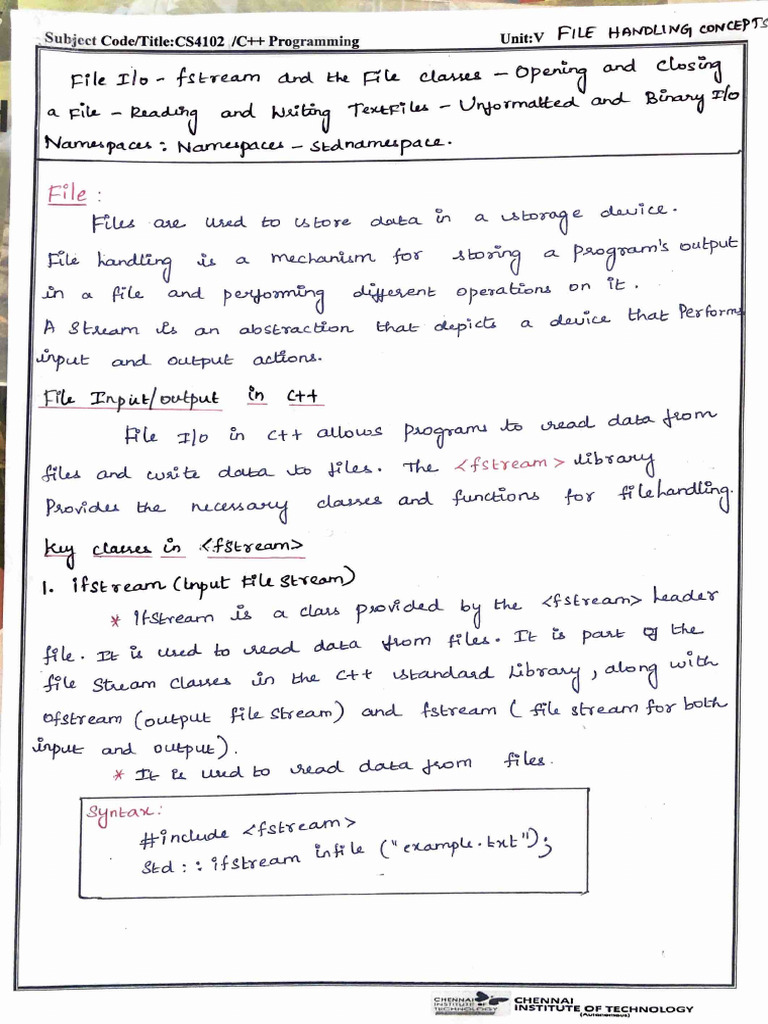 Subject Code/Title:CS4102 /C++ Programming Unit:V FILE HANDLING CONCEPTS
File I/o - fstream and the File classes - Opening and closing
a File - Reading and Writing TextFiles - Unformatted and Binary I/o
Namespaces: Namespaces - Stdnamespace.
File :
Files are used to store data in a storage device.
File handling is a mechanism for storing a program's output
in a file and performing different operations on it.
A Stream is an abstraction that depicts a device that Performs
input and output actions.
File Input/output in C++
File I/o in C++ allows programs to read data from
files and write data to files. The <fstream> library
Provides the necessary classes and functions for filehandling.
Key classes in <fstream>
1. ifstream (Input File Stream)
* Ifstream is a class provided by the <fstream> header
file. It is used to read data from files. It is part of the
file Stream classes in the C++ standard Library, along with
ofstream (output file Stream) and fstream ( file stream for both
input and output).
* It is used to read data from files.
Syntax:
#include <fstream>
Std :: ifstream infile ("example.txt");
CHENNAI INSTITUTE OF TECHNOLOGY
CHENNAI
INSTITUTE OF TECHNOLOGY
(Autonomous)